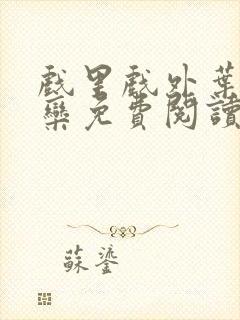 戲里戲外葉
欒免費閱讀
蘇鎏